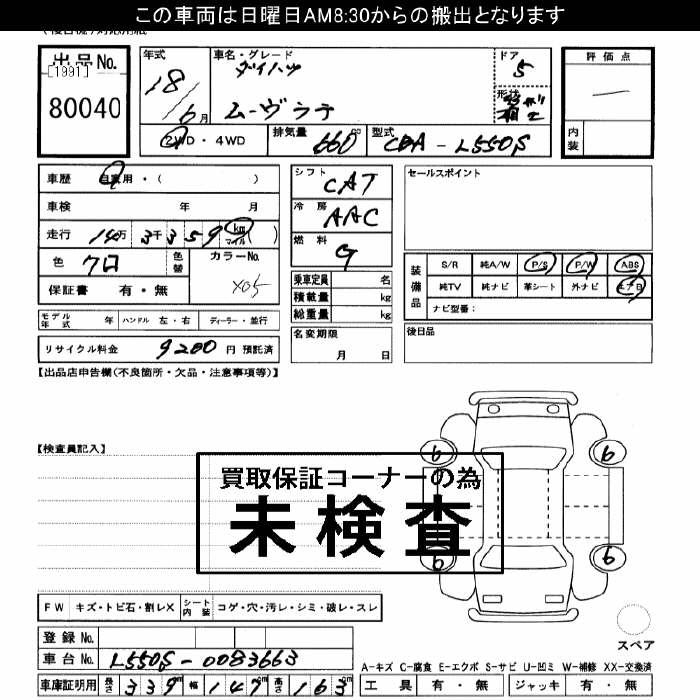 この車両は日曜日AM8:30からの搬出となります
出品No.
[1991]
80040
年式
18
6月
車名・グレード
ダイハツ
ムーヴラテ
ドア
5
形状
評価点
内装
2WD・4WD
排気量
660
cc
型式
CBA - L550S
車歴 自家用・( )
車検 年 月
走行 14万3千359 km マイル ( )
色 クロ
色替
カラーNo.
X05
保証書 有・無
モデル年式 年 ハンドル 左・右 ディーラー・並行
リサイクル料金 9200 円 預託済
シフト
CAT
冷房
AAC
燃料
G
乗車定員 名
積載量 kg
総重量 kg
名変期限
月 日
セールスポイント
装備品
S/R 純A/W P/S P/W ABS
純TV 純ナビ 革シート 外ナビ エアB
ナビ型番:
後日品
【出品店申告欄(不良箇所・欠品・注意事項等)】
【検査員記入】
買取保証コーナーの為
未検査
6
6
6
6
スペア
FW キズ・トビ石・割レX
シート内装 コゲ・穴・汚レ・シミ・破レ・スレ
登録No.
車台No. L550S-0083663
車庫証明用 長さ 339 幅 147 高さ 163
A-キズ C-腐食 E-エクボ S-サビ U-凹ミ W-補修 XX-交換済
工具 有・無 ジャッキ 有・無